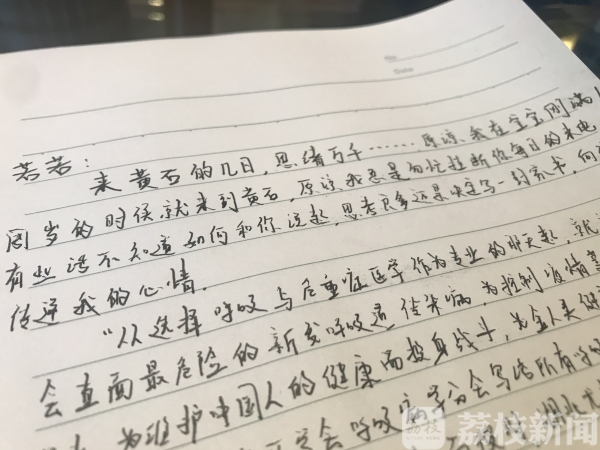 No.
Date
若若：
来黄石的几日，思绪万千……原谅我在宝宝刚满
周岁的时候就来到黄石，原谅我总是匆忙挂断你每日的来电
有些话不知道如何和你说起，思考良多还是决定写一封家书，向
传递我的心情。
“从选择呼吸与危重症医学作为专业的那天起，就
会直面最危险的新发呼吸道传染病，为控制疫情
为维护中国人的健康而投身战斗，为全人类健
会呼吸病学分会写给所有呼
荔枝
荔枝新闻